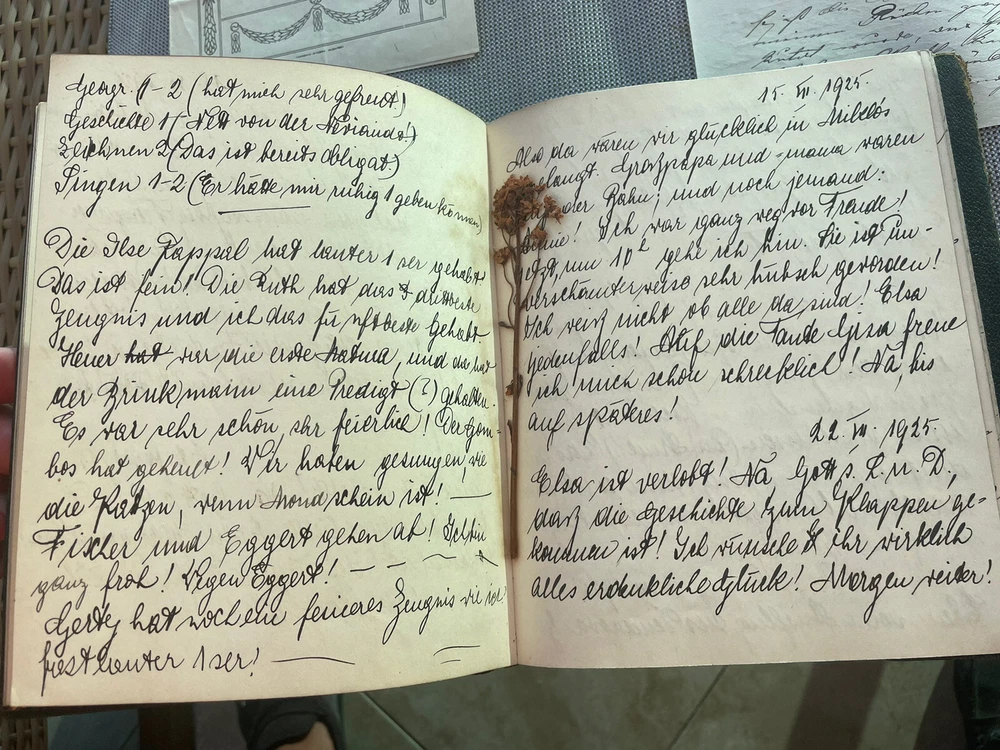 Geogr. 1-2 (hat mich sehr gefreut!)
Geschichte 1 (Nett von der
Zeichnen 2 (Das ist bereits obligat.)
Singen 1-2 (Er hätte mir ruhig 1 geben können)
Die Ilse Kappal hat lauter 1ser gehabt
Das ist fein! Die Ruth hat das drittbeste
Zeugnis und ich das fünftbeste gehabt
Heuer hat war die erste Matura, und da hat
der Brinkmann eine Predigt (?) gehalten.
Es war sehr schön, sehr feierlich! Der Gom-
bos hat geheult! Wir haben gesungen, wie
die Katzen, wenn Mondschein ist! —
Fischer und Eggert gehen ab! Ich bin
ganz froh! Wegen Eggert! — — —
Gerty hat noch ein feineres Zeugnis wie ich!
fast lauter 1ser! —
15. VII. 1925.
Also da wären wir glücklich in Miklós
gelangt. Grosspapa und -mama waren
der Bahn; und noch jemand:
Ich war ganz weg vor Freude!
Jetzt, um 10h gehe ich hin. Sie ist un-
verschämterweise sehr hübsch geworden!
Ich weiß nicht ob alle da sind! Elsa
jedenfalls! Auf die Tante Gisa freue
ich mich schon schrecklich! Na, bis
auf späteres!
22. VII. 1925.
Elsa ist verlobt! Na Gott s. L. u. D.,
daß die Geschichte zum Klappen ge-
kommen ist! Ich wünsche ihr wirklich
alles erdenkliche Glück! Morgen weiter!